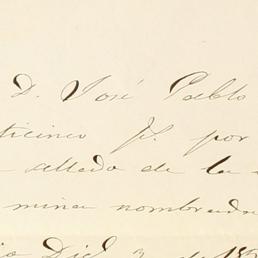 D. José Pablo
ticinco f. por
allado de la
mina nombrada
Dic 2 de